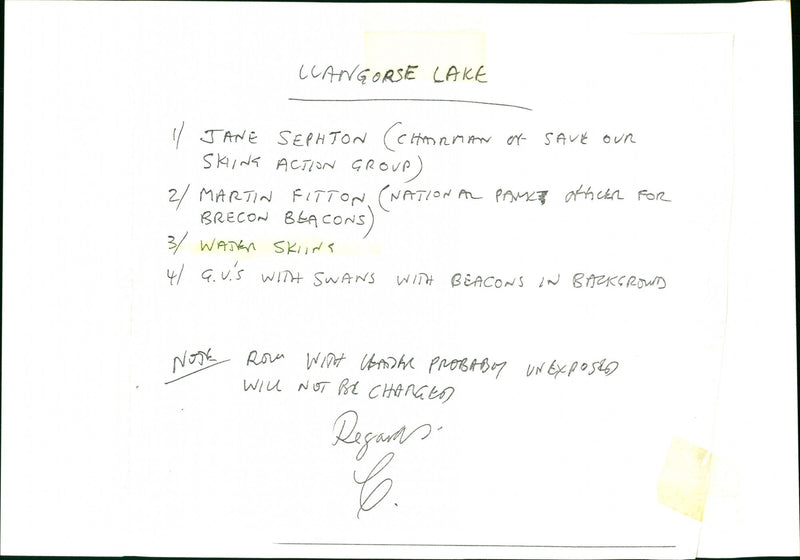 LLANGORSE LAKE
1/ JANE SEPHTON (CHAIRMAN OF SAVE OUR
SKIING ACTION GROUP)
2/ MARTIN FITTON (NATIONAL PARK OFFICER FOR
BRECON BEACONS)
3/ WATER SKIING
4/ G.V.'S WITH SWANS WITH BEACONS IN BACKGROUND
NOTE ROLL WITH LEADER PROBABLY UNEXPOSED
WILL NOT BE CHARGED
Regards.
C.